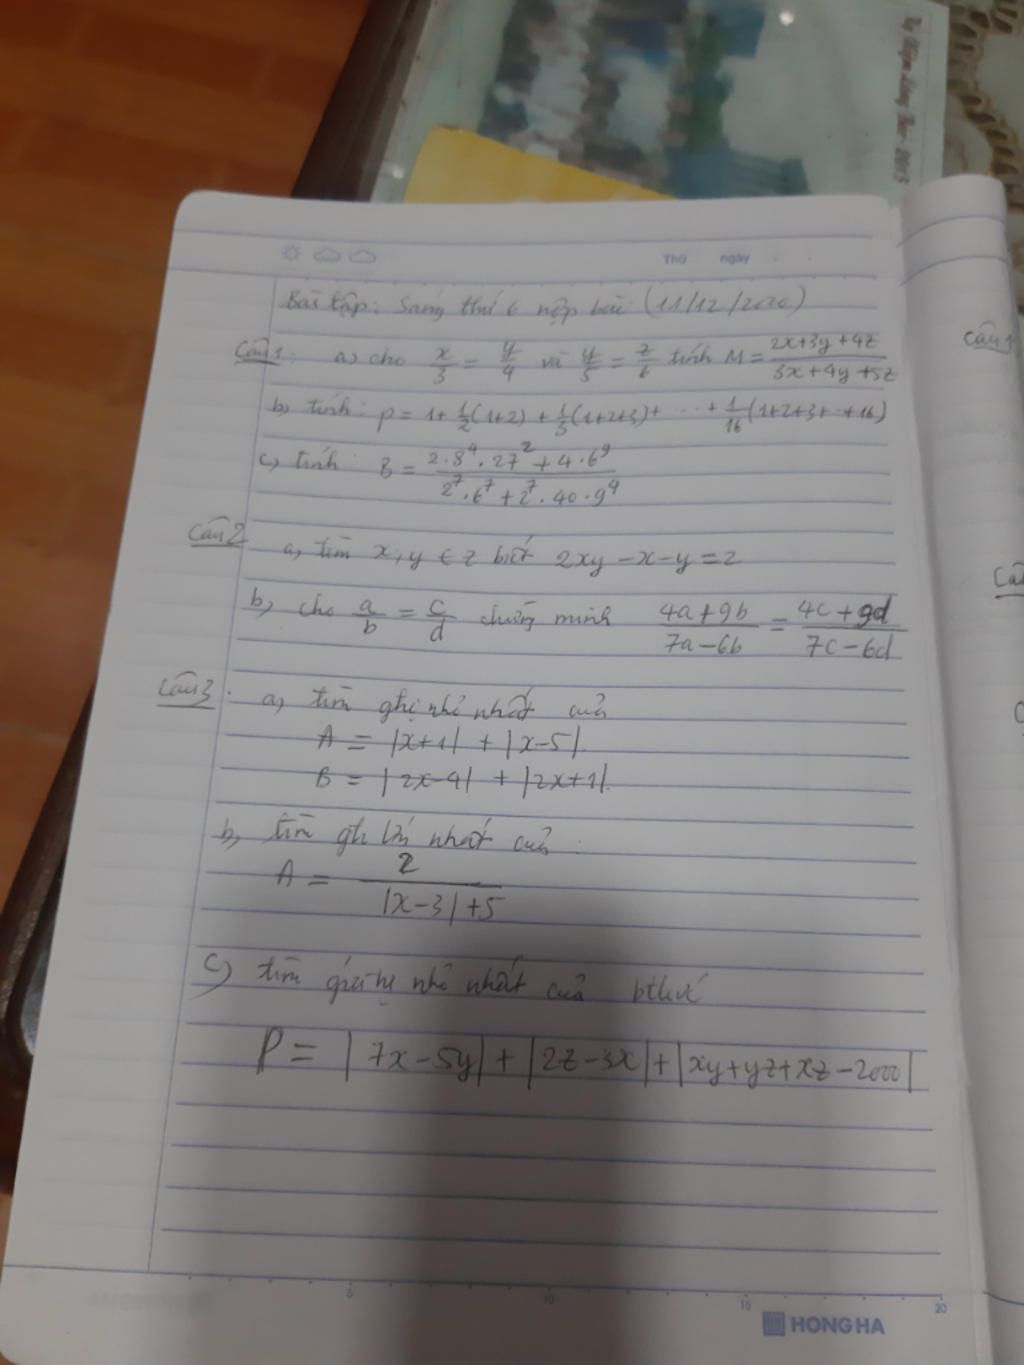 Tự Nhiên Làng Thơ - 2015
Thứ ngày
Bài tập: Sáng thứ 6 nộp bài (11/12/2020)
Câu 1: a) cho x/3 = y/4 và y/5 = z/6 tính M = (2x+3y+4z)/(3x+4y+5z)
b) tính: P = 1+ 1/2(1+2) + 1/3(1+2+3)+ ... + 1/16(1+2+3+..+16)
c) tính B = (2.8^4.27^2+4.6^9)/(2^7.6^7+2^7.40.9^4)
Câu 2 a) tìm x,y ∈ z biết 2xy -x-y=2
b) cho a/b = c/d chứng minh (4a+9b)/(7a-6b) = (4c+9d)/(7c-6d)
Câu 3: a) tìm gtrị nhỏ nhất của
A = |x+1| + |x-5|.
B = |2x-4| + |2x+1|.
b) tìm gt lớn nhất của:
A = 2/(|x-3|+5)
c) tìm giá trị nhỏ nhất của bthức
P = |7x-5y| + |2z-3x| + |xy+yz+xz-2000|
5 10 15 20
HONG HA
Câu 1